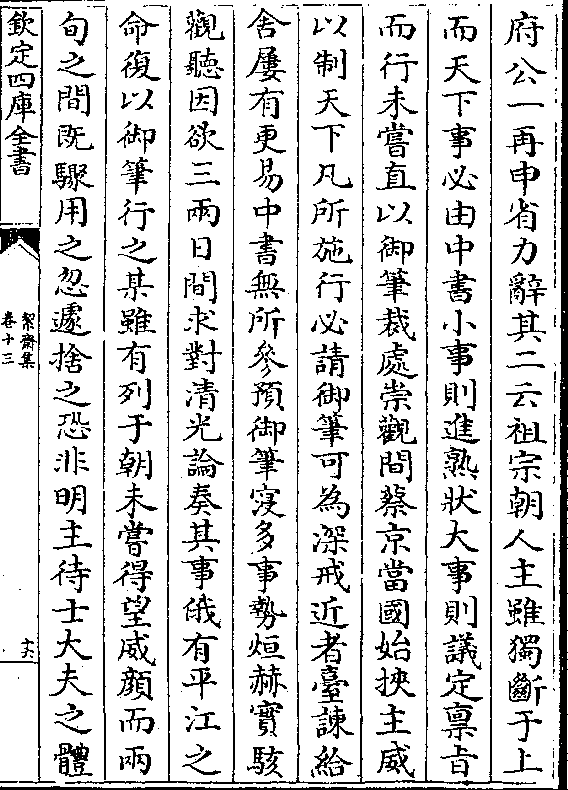 府公一再申省力辭其二云祖宗朝人主雖獨斷于上
而天下事必由中書小事則進熟狀大事則議定稟旨
而行未嘗直以御筆裁處崇觀間蔡京當國始挾主威
以制天下凡所施行必請御筆可為深戒近者臺諫給
舍屢有更易中書無所參預御筆寖多事勢烜赫實駭
觀聽因欲三兩日間求對清光論奏其事俄有平江之
命復以御筆行之某雖有列于朝未嘗得望威顏而兩
旬之間既驟用之忽遽捨之恐非明主待士大夫之體
欽定四庫全書
絜齋集
卷十三
十六